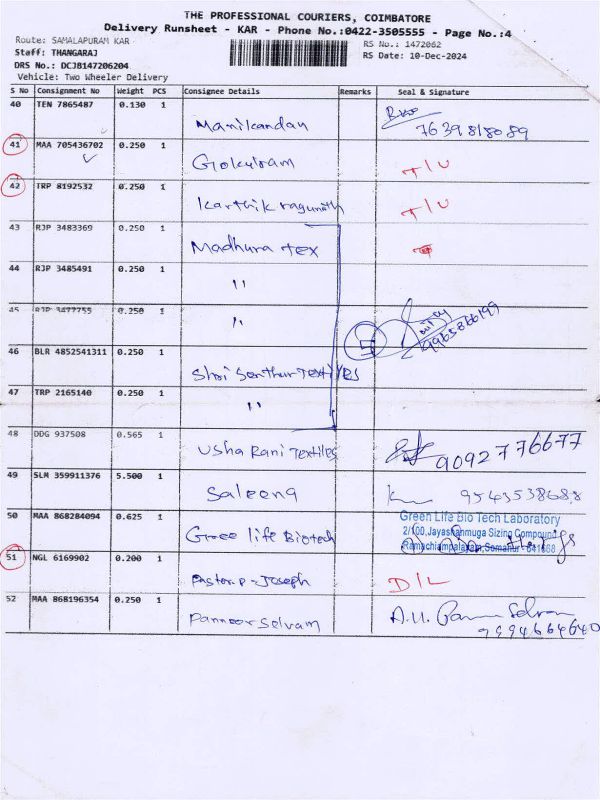 THE PROFESSIONAL COURIERS, COIMBATORE
Delivery Runsheet - KAR - Phone No.:0422-3505555 - Page No.:4
Route: SAMALAPURAM KAR
RS No.: 1472062
Staff: THANGARAJ
RS Date: 10-Dec-2024
DRS No.: DCJ8147206204
Vehicle: Two Wheeler Delivery
S No Consignment No Weight PCS Consignee Details Remarks Seal & Signature
40 TEN 7865487 0.130 1
Manikandan 7639818089
41 MAA 705436702 0.250 1
Gokulram T/U
42 TRP 8192532 0.250 1
Karthik ragunath T/U
43 RJP 3483369 0.250 1
Madhura tex
44 RJP 3485491 0.250 1
"
45 RJP 3477755 0.250 1
"
5
9965866199
46 BLR 4852541311 0.250 1
Shri Senthur TextilES
47 TRP 2165140 0.250 1
"
48 DDG 937508 0.565 1
Usha Rani Textiles 9092776677
49 SLM 359911376 5.500 1
Saleena 9543538688
50 MAA 868284094 0.625 1
Gree life Biotech
Green Life Bio Tech Laboratory
2/100,Jayashanmuga Sizing Compound
Ramachiampalayam, Somanur - 641668
51 NGL 6169902 0.200 1
Pastor.P-Joseph D/L
52 MAA 868196354 0.250 1
Panneerselvam
9994664640